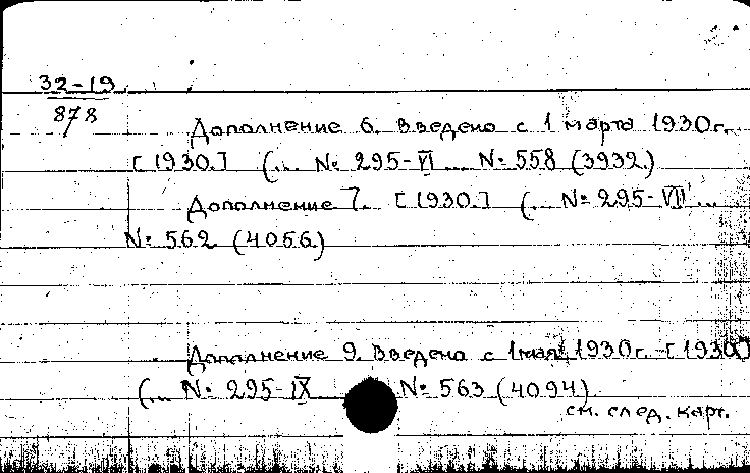 32-19
878
Дополнение 6. Введено с 1 марта 1930г.
[1930.] (... №: 295-VI ... №: 558 (3932.)
Дополнение 7. [1930.] (... №: 295-VII ...
№: 562 (4056)
Дополнение 9. Введено с 1 мая 1930г. [1930]
(... №: 295-IX №: 563 (4094)
см. след. карт.